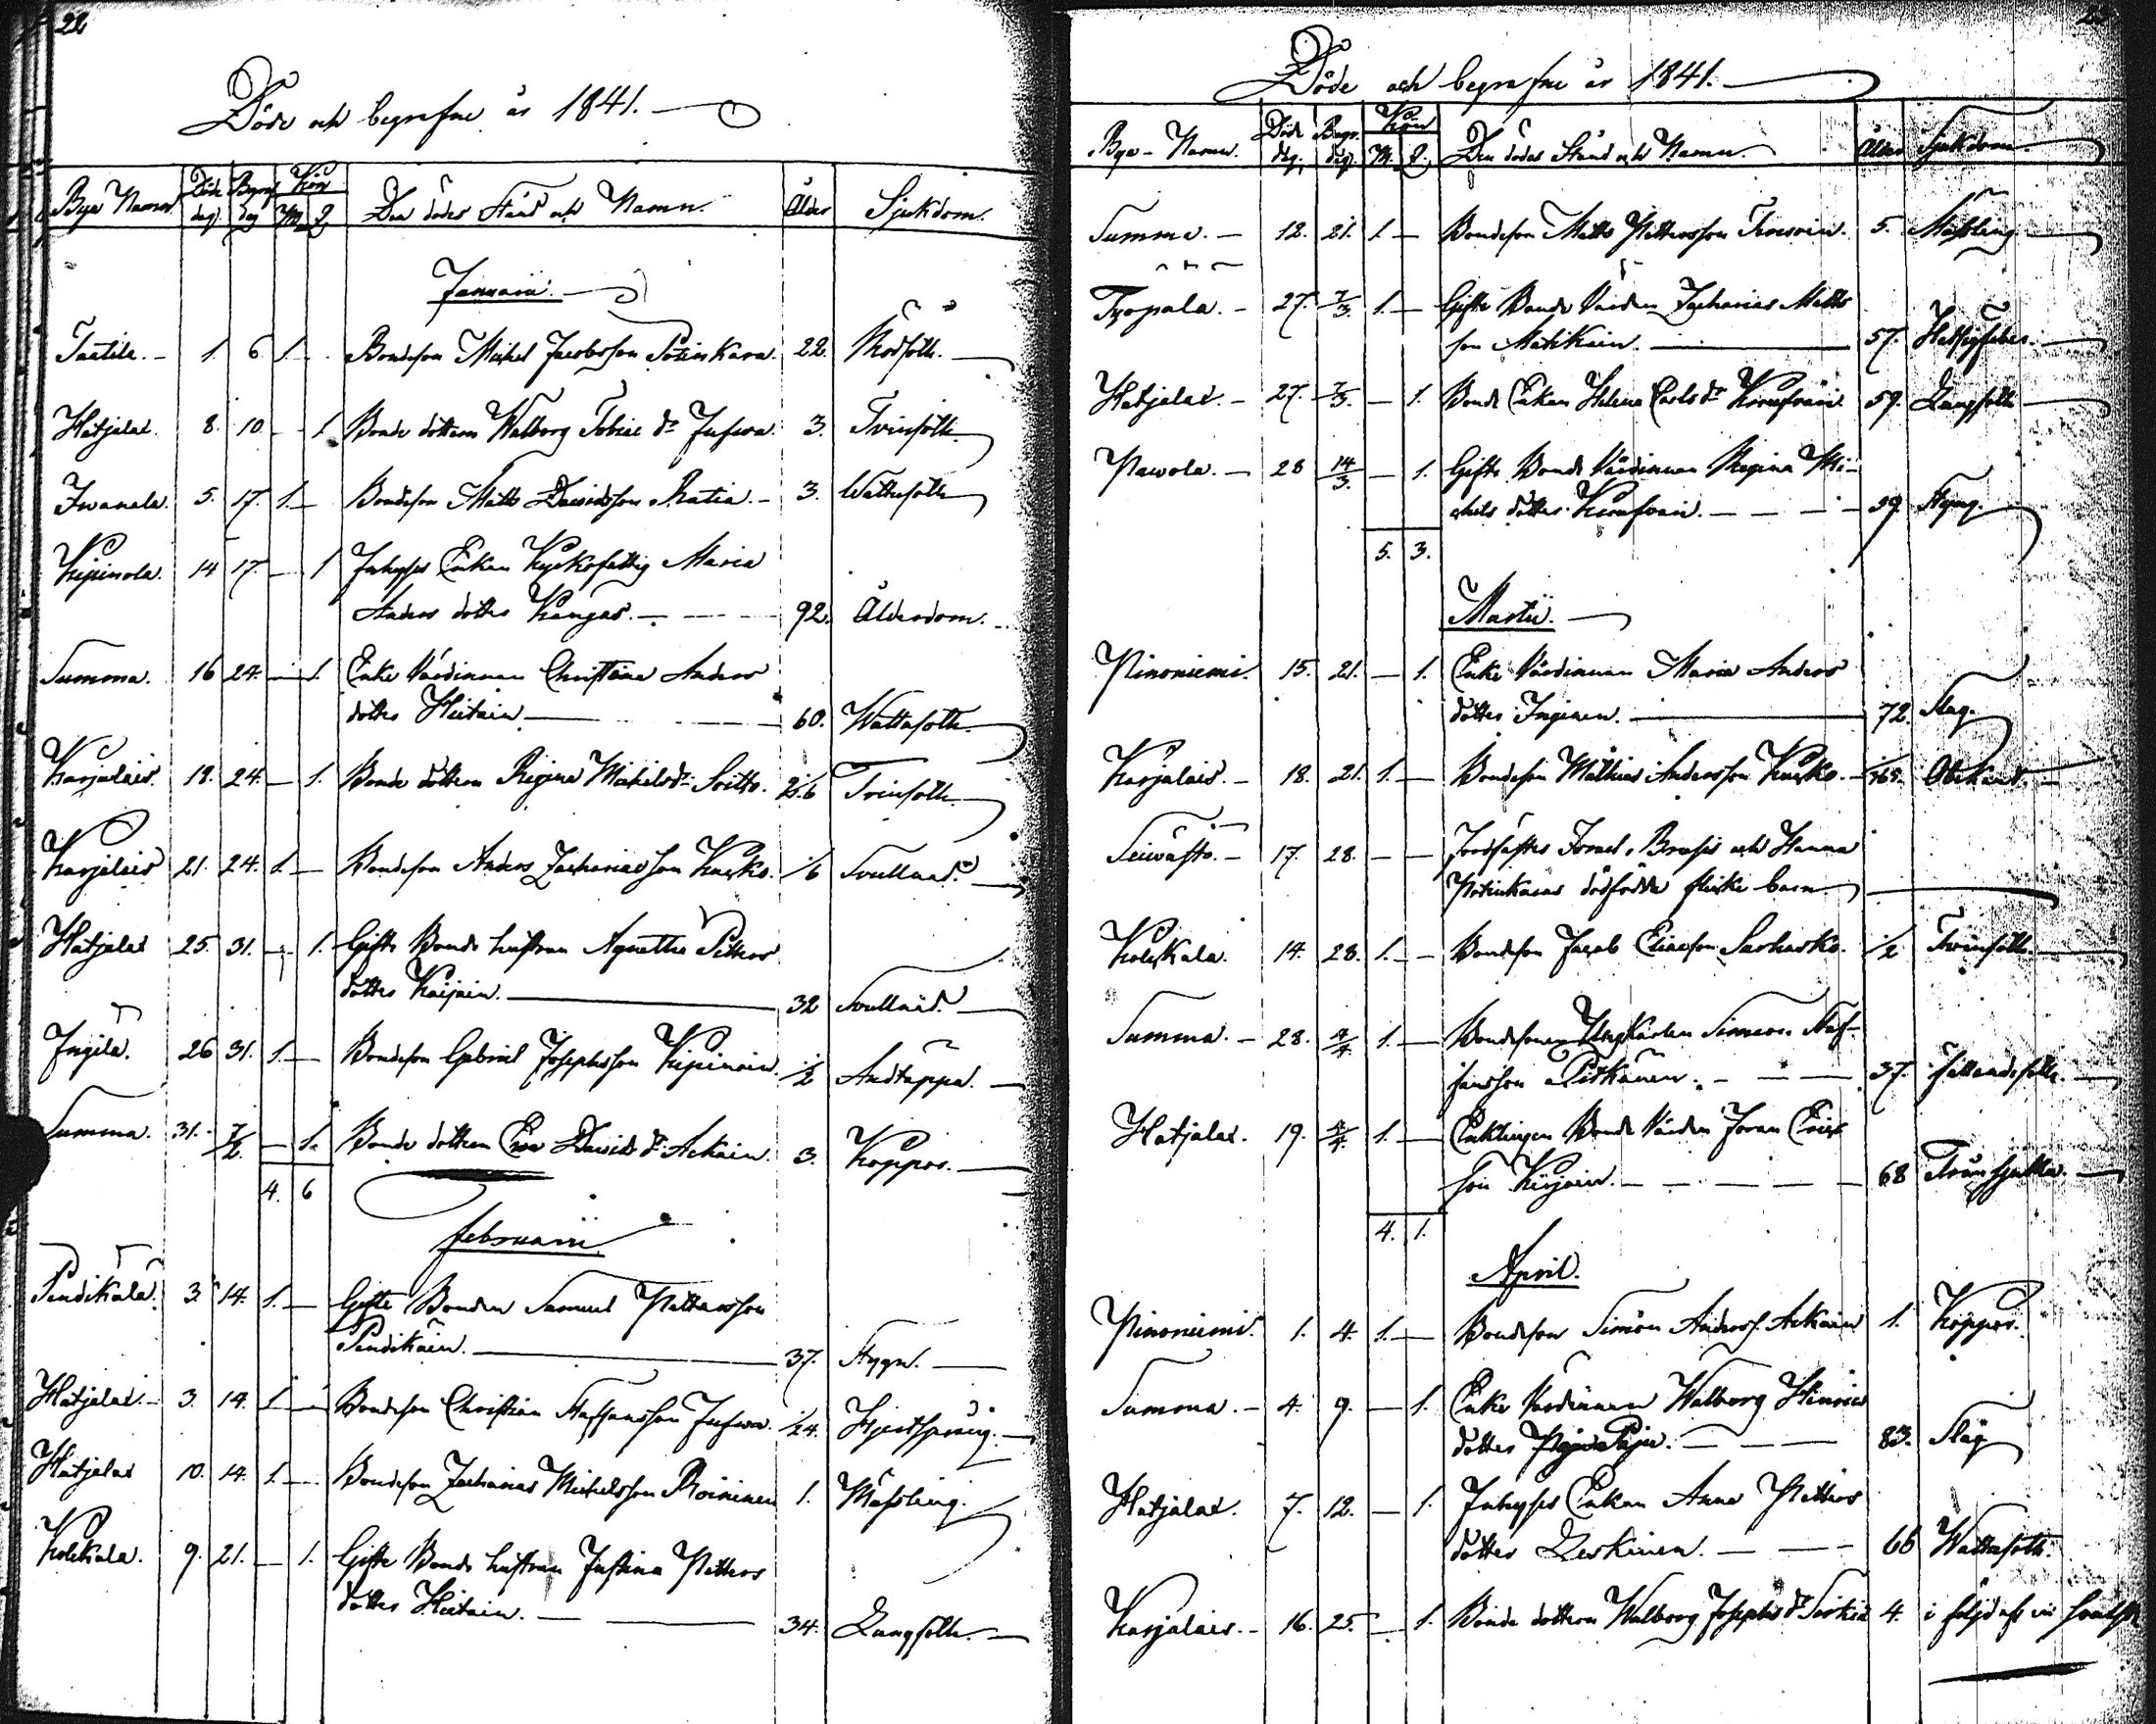 22
Döde och begrafne år 1841.
Bya Namn Döde dag. Begraf dag Kön M. Q. Den dödes Stånd och Namn. Ålder Sjukdom.
Januarii.
Taatila. 1. 6. 1. Bondeson Michel Jacobsson Pötinkara. 22. Rödsoth.
Hatjalax. 8. 10. 1. Bonde dottern Walborg Tobiae dr Jufwa. 3. Tvinsoth.
Iwanala. 5. 17. 1. Bondeson Matts Davidsson Ratia. 3. Wattusoth
Kipinola. 14 17. 1 Inhyses Enkan Kyrkofattig Maria
Anders dotter Kangas. 92. Ålderdom.
Summa. 16 24. 1. Enke Värdinnan Christina Anders
dotter Hietain 60. Wattusoth.
Karjalais. 18. 24. 1. Bonde dottern Regina Michelsdr Soitto. Tvinsoth
Karjalais 21. 24. 1. Bondeson Anders Zachariasson Kurko. 1/6 Svullnad.
Hatjalax 25 31. 1. Gifte Bonde hustrun Agnetha Petters
dotter Kaijain. 32 Svullnad.
Ingila. 26 31. 1. Bondeson Gabriel Josephsson Kipinoin. 1/2 Andtäppa.
Summa. 31. 7/2 1. Bonde dottern Eva Davids dr Ackain. 3. Koppor.
4. 6
Februarii
Pendikälä. 3. 14. 1. Gifte Bonden Samuel Pettersson
Pendikäin. 37. Stygn.
Hatjalax. 3. 14. 1. Bondeson Christian Staffansson Jufwa. 1/24. Hjertsprång.
Hatjalax 10. 14. 1. Bondeson Zacharias Michelsson Roininen 1. Mässling.
Kolckala. 9. 21. 1. Gifte Bonde hustrun Justina Petters
dotter Hietain. 34. Lungsoth.
Döde och begrafne år 1841.
Bya-Namn. Döde dag. Begr. dag. Kön M. Q. Den dödes Stånd och Namn. Ålder Sjukdom
Summa. 12. 21. 1. Bondeson Matts Pettersson Termoin. 5. Mässling
Tyopala. 27. 7/3. 1. Gifte Bonde Värden Zacharias Matts
son Mätikäin. 57. Hetsigfeber.
Hatjalax. 27. 7/3. 1. Bonde Enkan Helena Carls dr Kornfväin 59. Lungsoth
Pawola. 28 14/3. 1. Gifte Bonde Värdinnan Regina Mi-
chels dotter Kornfvain. 59. Stygn.
5. 3.
Martii.
Pinoniemi. 15. 21. 1. Enke Värdinnan Maria Anders
dotter Inginen. 72. Slag.
Karjalais. 18. 21. 1. Bondeson Mathias Andersson Kurko. Obekant.
Seiwästö. 17. 28. Jordfästes Israel Brusis och Hanna
Pötinkaras dödfödde flicke barn.
Kolckala. 14. 28. 1. Bondeson Jacob Eliasson Sarkarko. 1/2 Tvinsoth.
Summa. 28. 4/4. 1. Bondesonen Ungkarlen Simeon Staf-
fansson Pitkänen. 37. Fallandesoth.
Hatjalax. 19. 4/4. 1. Enklingen Bonde Värden Joran Erics
son Kirjain. 68 Trånsjukka.
4. 1.
April.
Pinoniemi. 1. 4. 1. Bondeson Simon Anderss. Ackain 1. Koppor.
Summa. 4. 9. 1. Enke Värdinnan Walborg Hinrics
dotter Paju. 83. Slag
Hatjalax. 7. 12. 1. Inhyses Enkan Anna Petters
dotter Leskinen. 66 Wattusoth.
Karjalais. 16. 25. 1. Bonde dottern Walborg Josephs dr Sirkiä 4. i följd af en